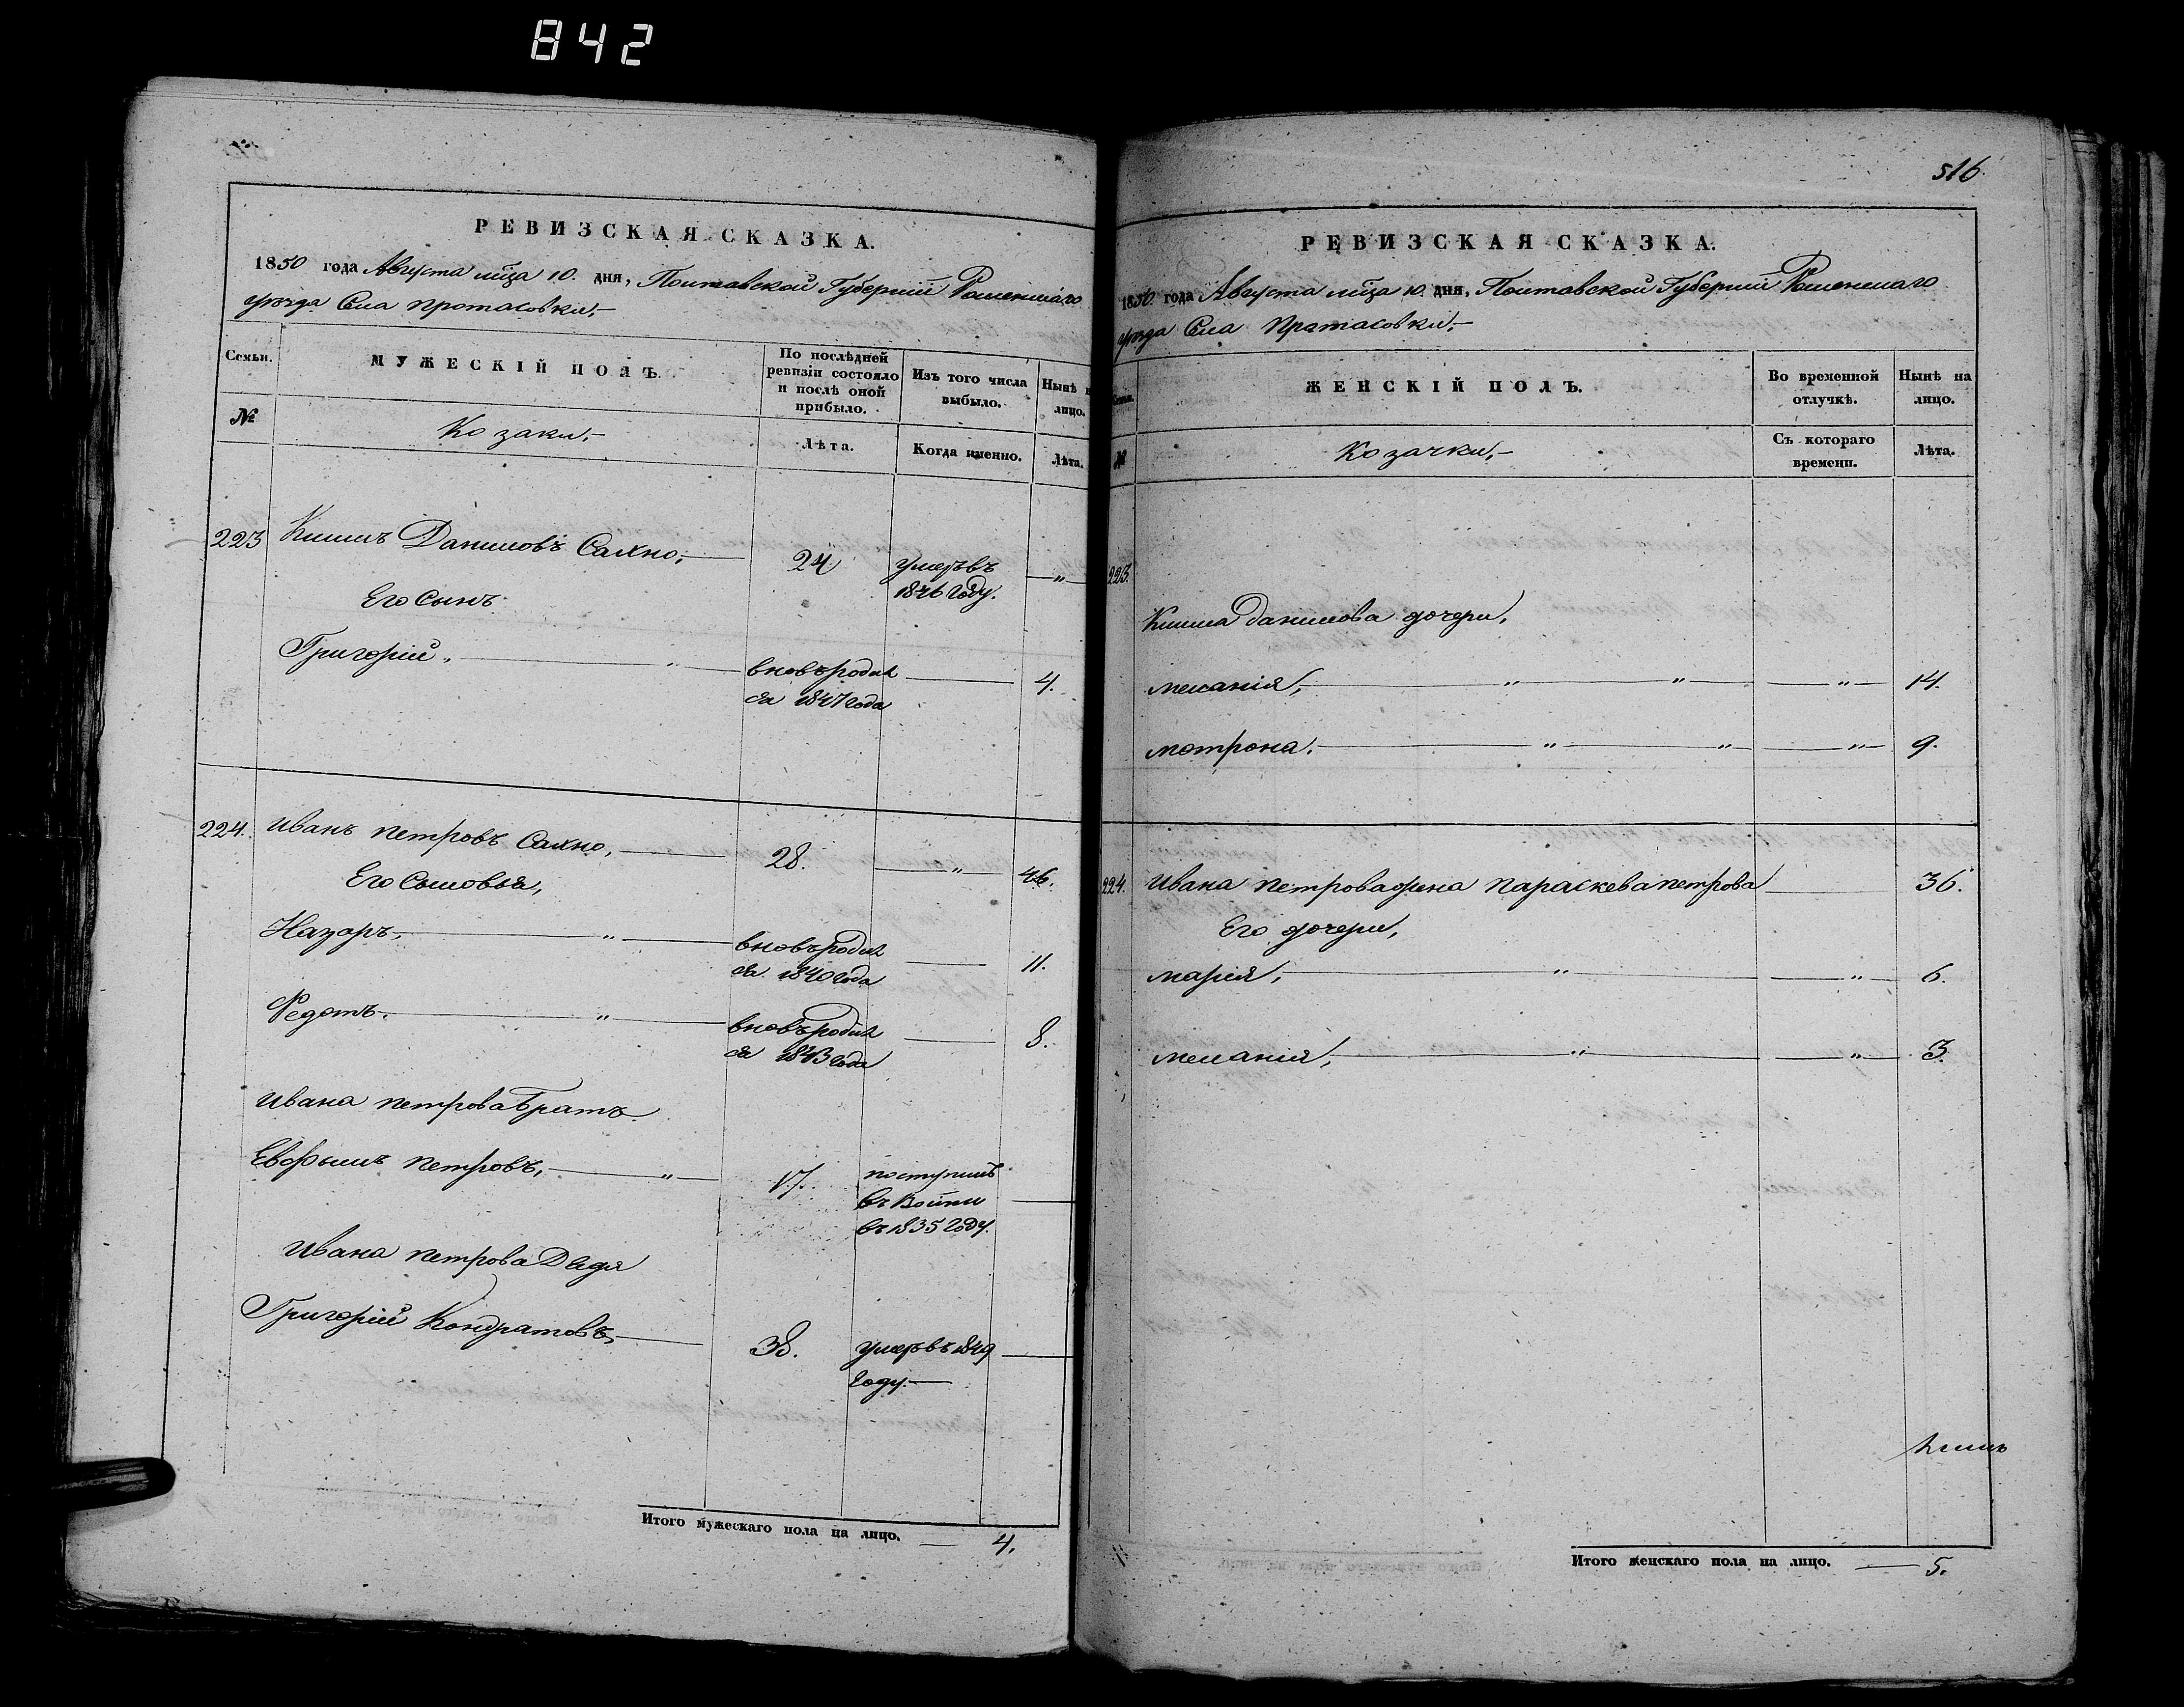 842
РЕВИЗСКАЯ СКАЗКА.
1850 года Августа мца 10. дня, Полтавской Губерніи Роменскаго
уѣзда Села Протасовки,
Семьи.
МУЖЕСКІЙ ПОЛЪ.
По послѣдней ревизіи состояло и послѣ оной прибыло.
Изъ того числа выбыло.
Нынѣ н лицо.
№
Козаки,
Лѣта.
Когда именно.
Лѣта.
223 Климъ Даниловъ Сахно, 24 умеръ въ 1846 году. "
Его Сынъ
Григорій " вновь родил ся 1847 года 4.
224. Иванъ Петровъ Сахно, 28. " 46.
Его Сыновья,
Назаръ, " вновь родил ся 1840 года 11.
Федотъ, " вновь родил ся 1843 года 8.
Ивана Петрова Братъ
Евфимъ Петровъ, " 17. поступилъ въ 1835 году.
Ивана Петрова Дядя
Григорій Кондратовъ, 38. умеръ въ 1849 году.
Итого мужескаго пола на лицо. 4.
516
РЕВИЗСКАЯ СКАЗКА.
1850 года Августа мца 10. дня, Полтавской Губерніи Роменскаго
уѣзда Села Протасовки,
Семьи.
ЖЕНСКІЙ ПОЛЪ.
Во временной отлучкѣ.
Нынѣ на лицо.
№
Козачки,
Съ котораго времени.
Лѣта.
223.
Клима Данилова дочери,
Меланія, " " " 14.
Мотрона. " " " 9.
224. Ивана Петрова жена Параскева Петрова 36.
Его дочери,
Марія, " " 6.
Меланія, " " 3.
Климъ
Итого женскаго пола на лицо. 5.